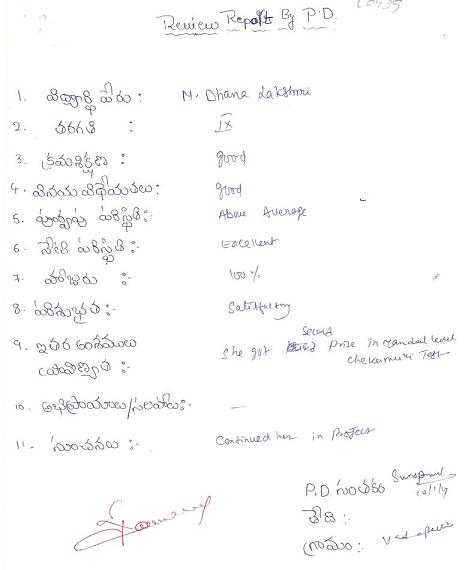 Review Report By P.D.
1. విద్యార్థి పేరు : M. Dhana Lakshmi
2. తరగతి : IX
3. క్రమశిక్షణ : good
4. వినయ విధేయతలు: good
5. పూర్వపు పరిస్థితి:- Above Average
6. నేటి పరిస్థితి:- Excellent
7. హాజరు :- 100%
8. పరిశుభ్రత :- Satisfactory
9. ఇతర అంశములు ప్రావీణ్యత :- She got Second Prize in mandal level Chekumuki Test
10. అభిప్రాయాలు/సలహాలు:- —
11. సూచనలు :- Continued her in Project
P.D సంతకం
తేది :-
గ్రామం:-